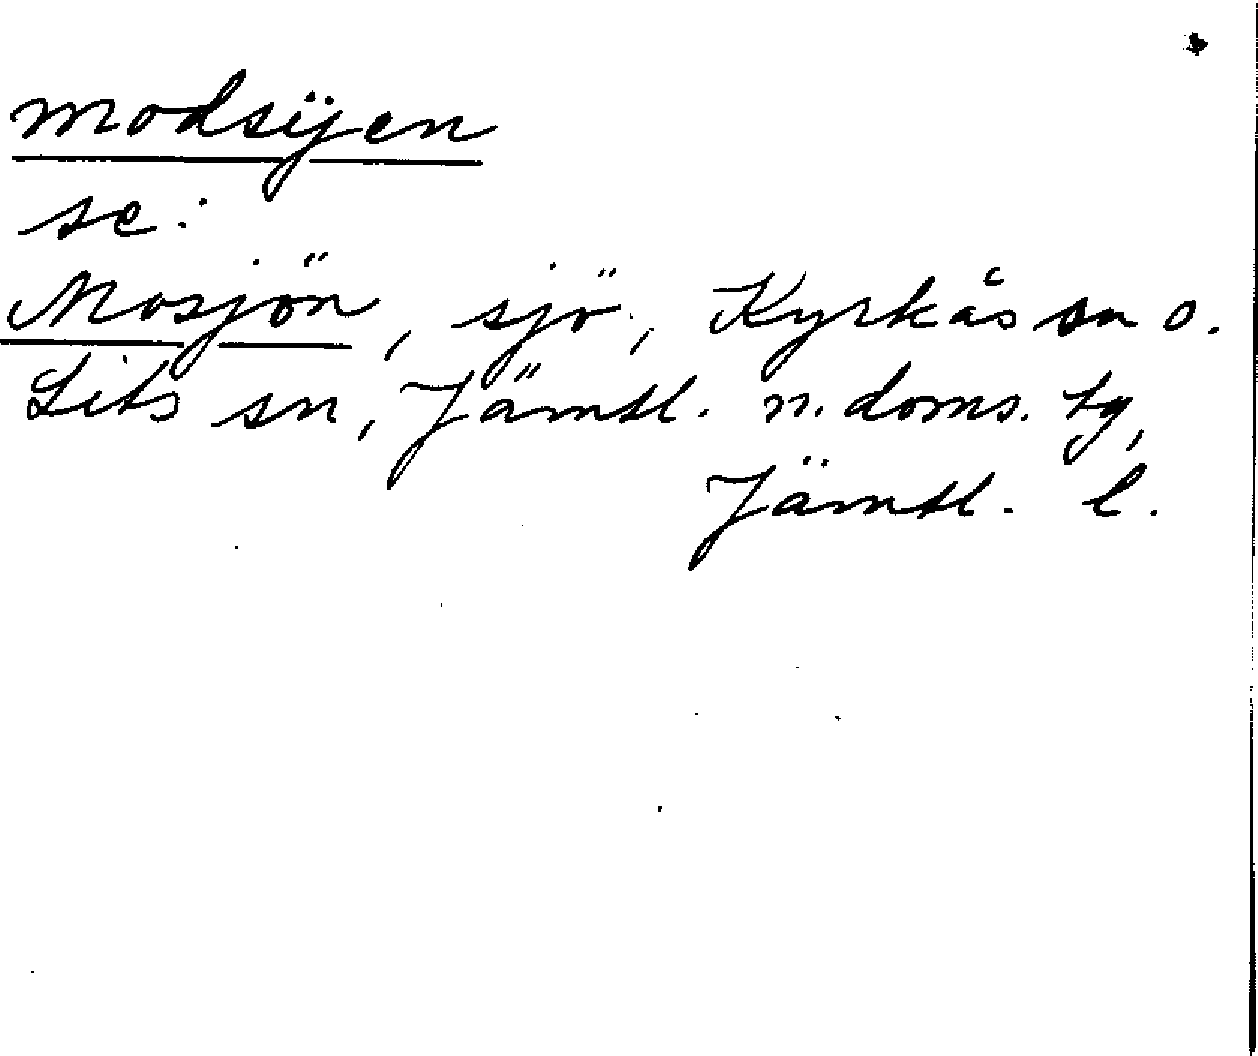 modsÿen
se:
Mosjön, sjö, Kyrkås sn o.
Lits sn, Jämtl. n. doms. tg,
Jämtl. l.